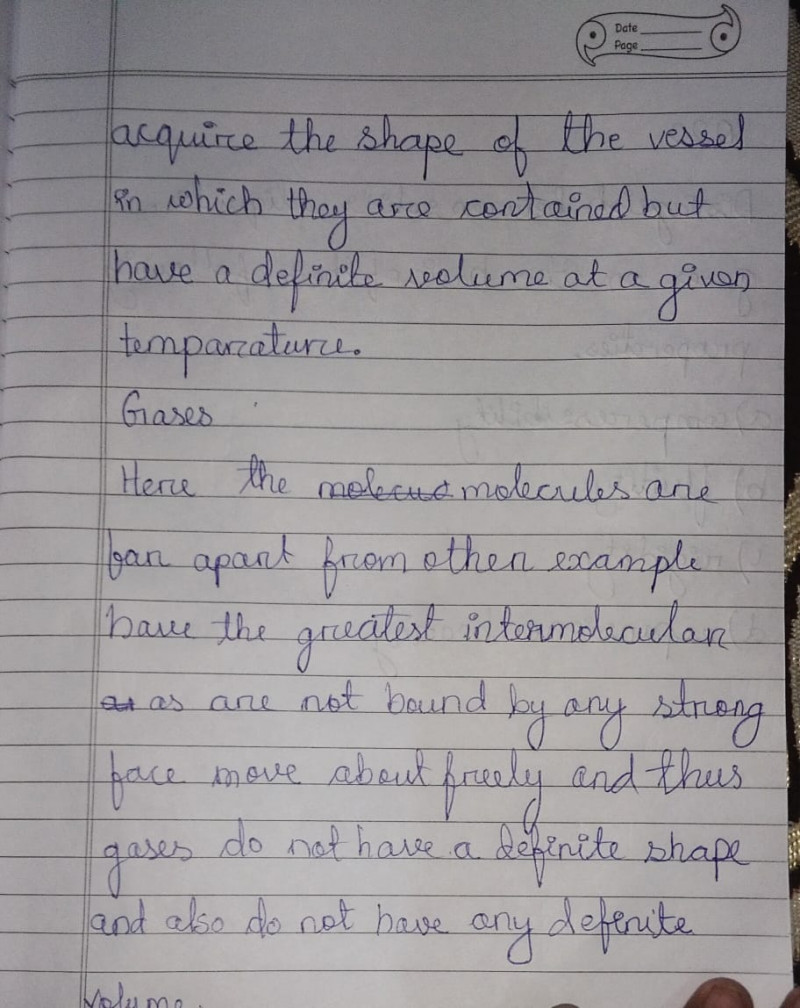 Date
Page
acquire the shape of the vessel
in which they are contained but
have a definite volume at a given
temparature.
Gases
Here the molecus molecules are
far apart from other example
have the greatest intermolecular
as are not bound by any strong
face move about freely and thus
gases do not have a definite shape
and also do not have any defenite
volume.